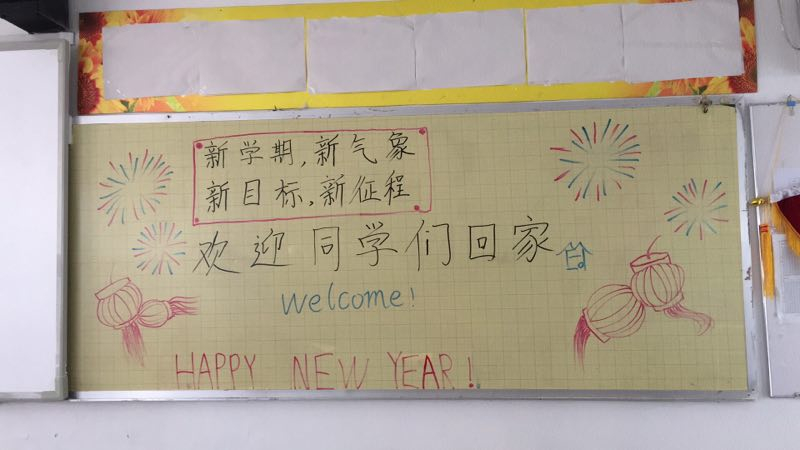 新学期,新气象
新目标,新征程
欢迎 同学们回家
welcome!
HAPPY NEW YEAR!